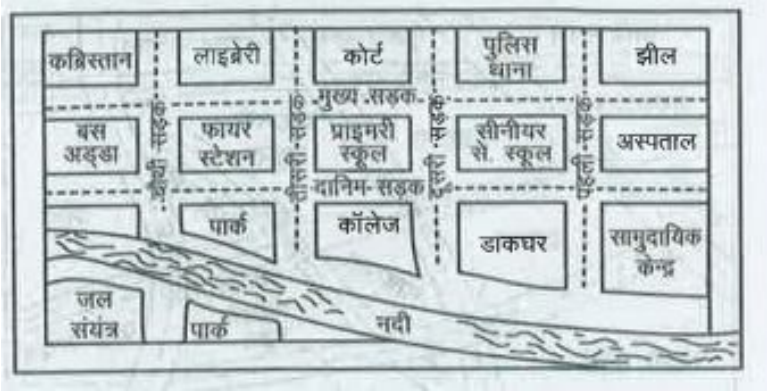 कब्रिस्तान
लाइब्रेरी
कोर्ट
पुलिस
थाना
झील
मुख्य सड़क
बस
अड्डा
फायर
स्टेशन
प्राइमरी
स्कूल
सीनीयर
से. स्कूल
अस्पताल
चौथी सड़क
तीसरी सड़क
दूसरी सड़क
पहली सड़क
दानिम सड़क
पार्क
कॉलेज
डाकघर
सामुदायिक
केन्द्र
जल
संयंत्र
पार्क
नदी